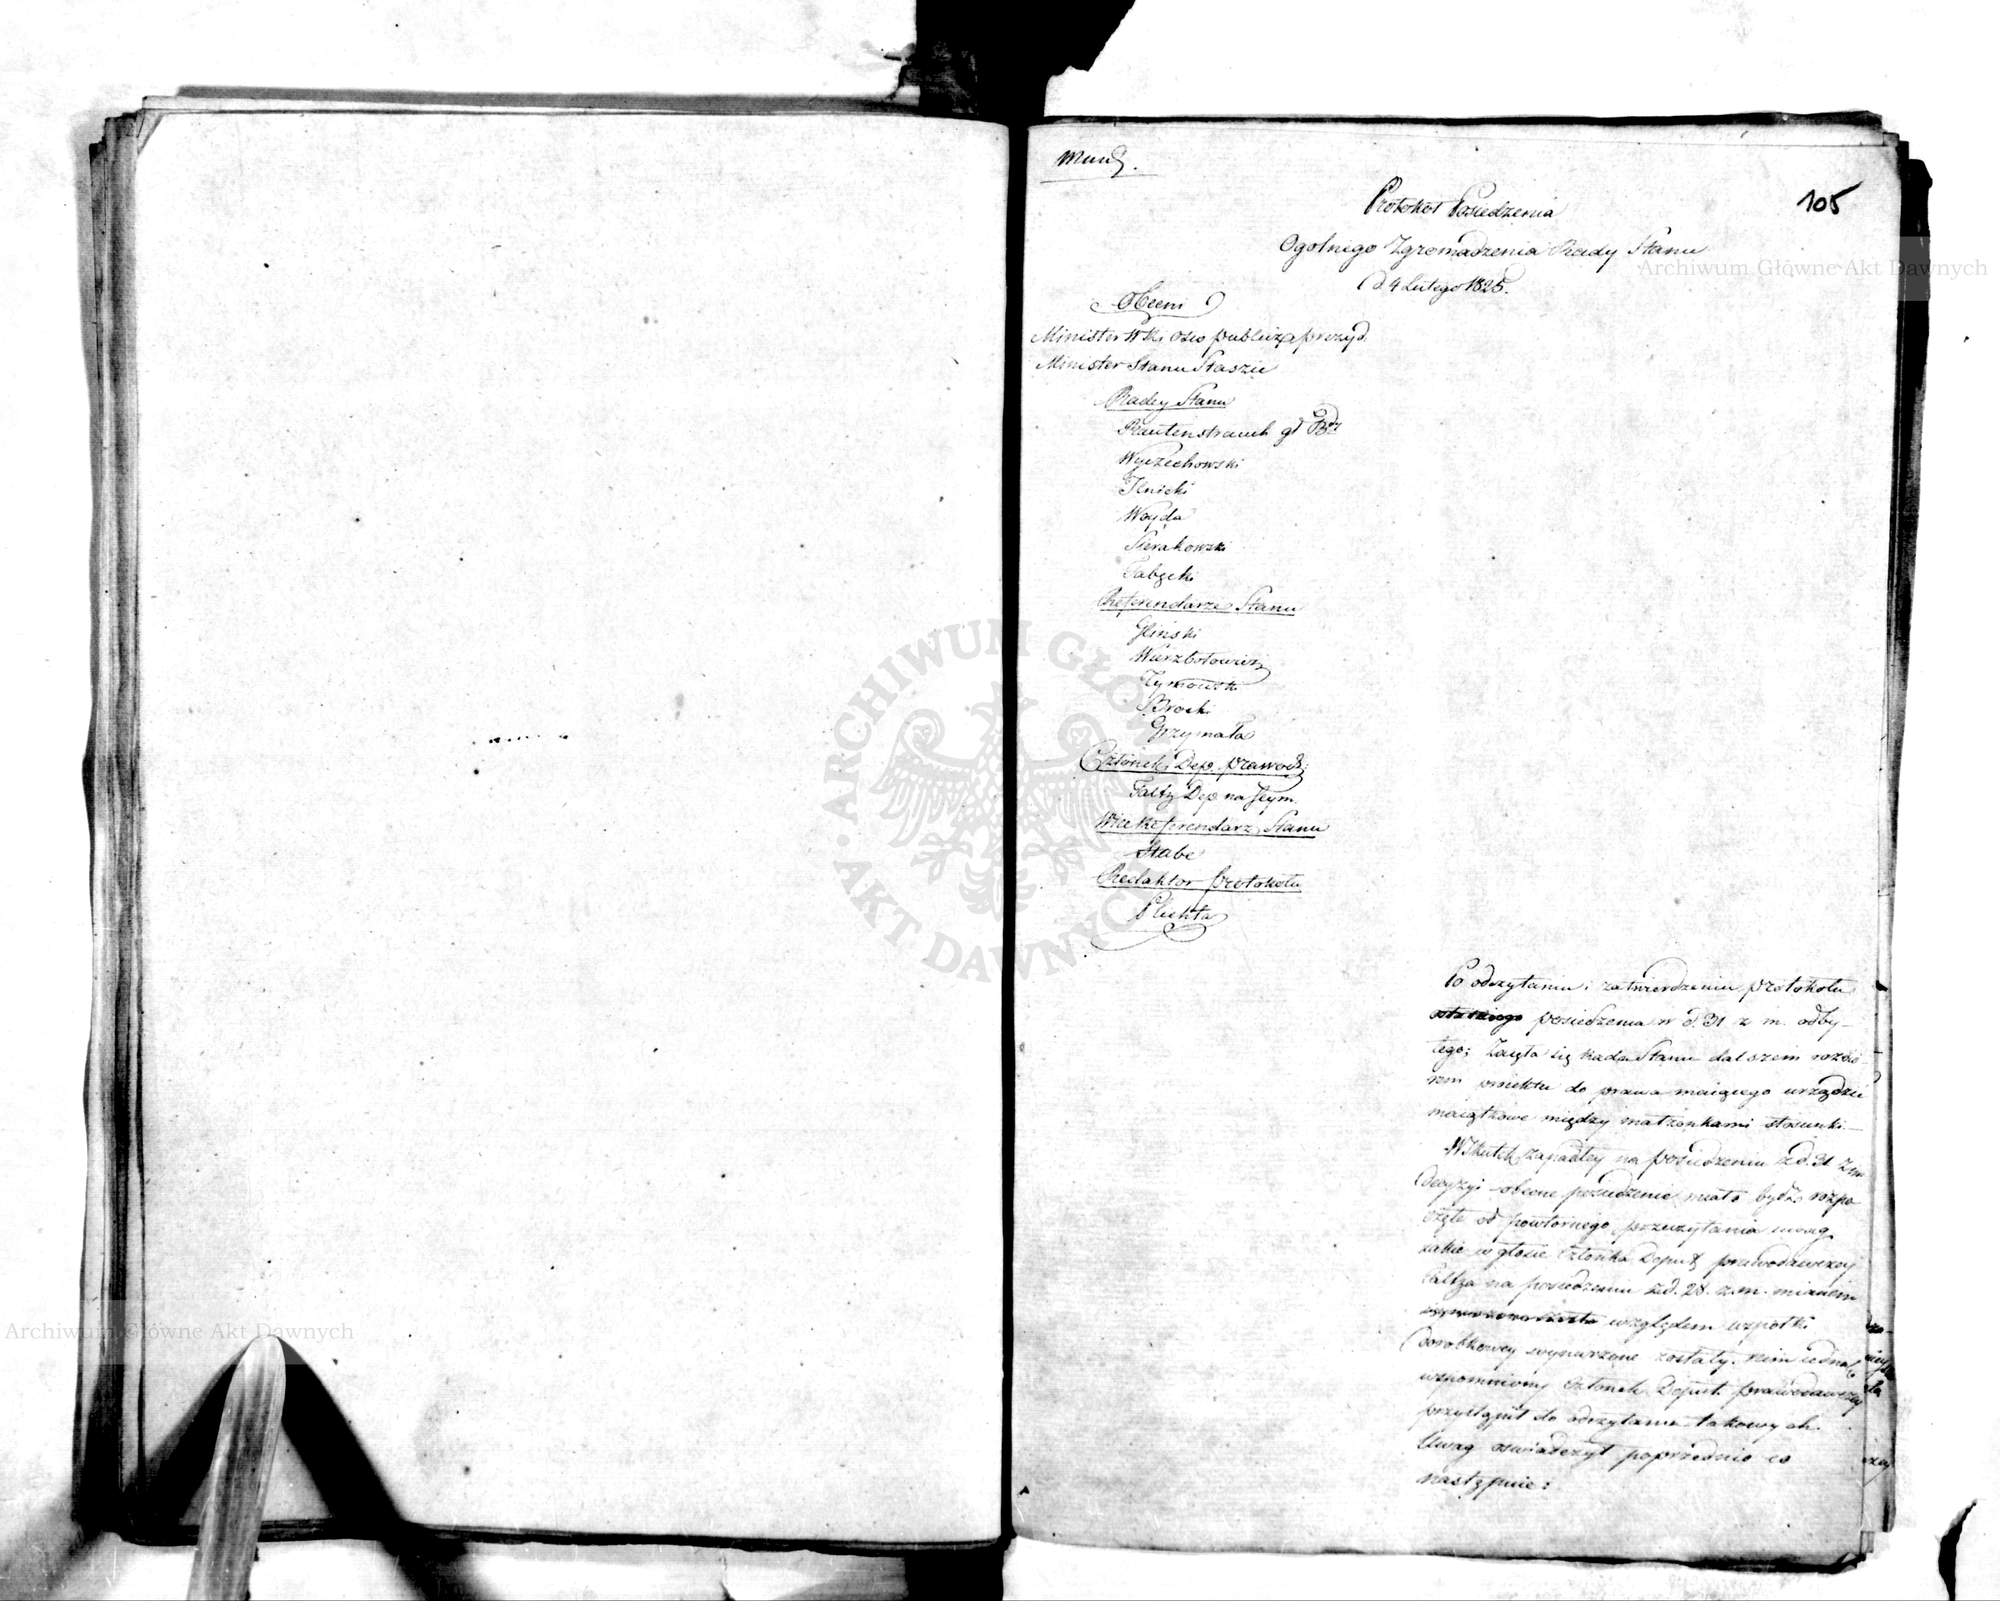 Mund.
105
Protokoł Posiedzenia
Ogolnego Zgromadzenia Rady Stanu
d. 4 Lutego 1825.
Obecni
Minister WRi Ośw publicz prezyd.
Minister Stanu Staszic
Radcy Stanu
Rautenstrauch gł
Wyczechowski
Ilnicki
Woyda
Sierakowski
Tabęcki
Referendarze Stanu
Gliński
Wierzbołowicz
Tymowski
Brocki
Grzymała
Członek Dep. prawod:
Faltz Dep. na Seym.
Wice Referendarz Stanu
Stabe
Redaktor protokołu
Plichta
Po odczytaniu i zatwierdzeniu protokołu
posiedzenia w d. 31 z. m. odby-
tego; Zaięła się Rada Stanu dalszem rozbio
rem proiektu do prawa maiącego urządzić
maiątkowe między małżonkami stosunki.—
W skutek zapadłey na posiedzeniu z d. 31 z. m.
decyzyi obecne posiedzenie miało bydź rozpo-
częte od powtornego przeczytania uwag
iakie w głosie Członka Deput prawodawczey
Faltza na posiedzeniu z d. 28. z. m. mianem
względem wspolki
dorobkowey wynurzone zostały. Nim iednak
wspomniony Członek Deput. prawodawczey
przystąpił do odczytania takowych
Uwag oswiadczył poprzednio co
następuie:
Archiwum Główne Akt Dawnych
Archiwum Główne Akt Dawnych
ARCHIWUM GŁÓWNE AKT DAWNYCH